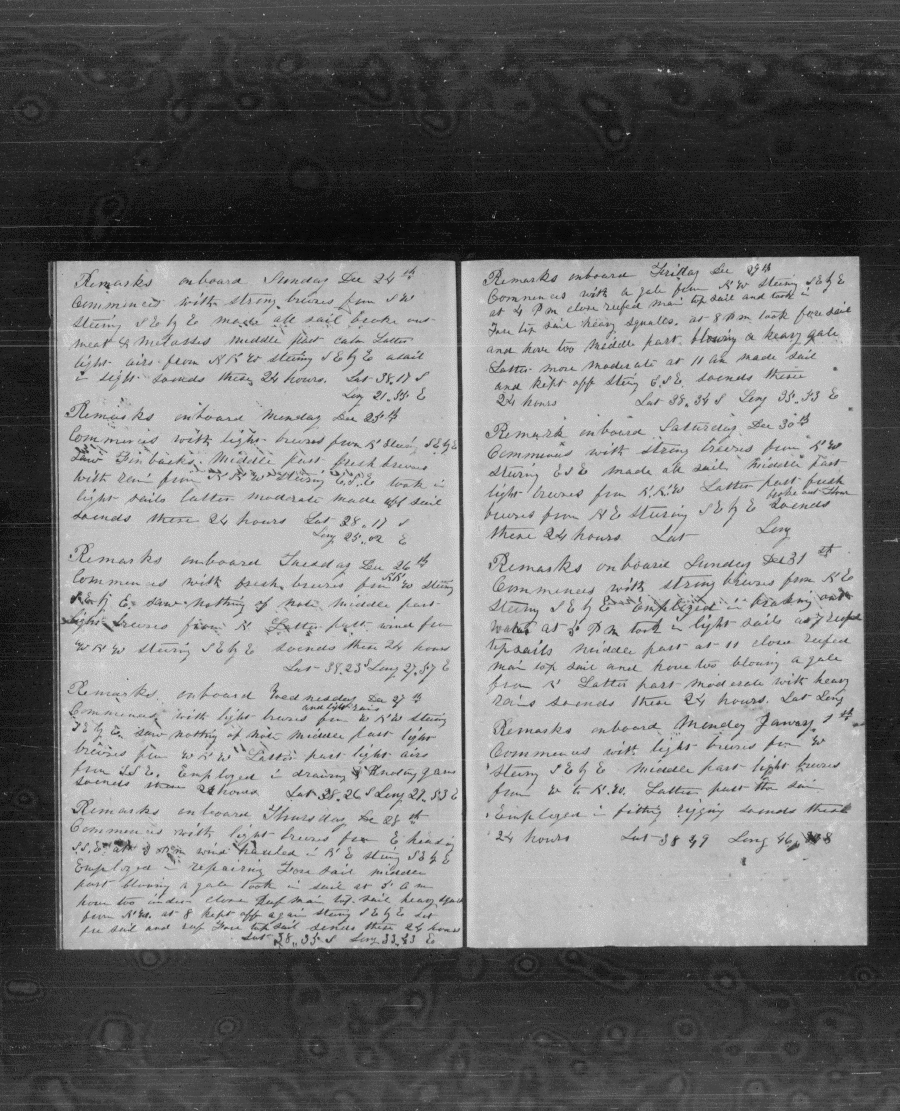 Remarks onboard Sunday Dec 24th
Commences with strong breeses from S W
Steering S E by E made all sail broke out
meat & Molasses Middle part calm Latter
light airs from N N W steering S E by E a sail
in sight soends these 24 hours. Lat 38,17 S
Long 21,55 E
Remarks onboard Monday Dec 25th
Commences with light breeses from N Steering S E by E
Saw Finbacks. Middle part fresh breeses
with rain from N N W steering E.S.E took in
light sails latter moderate made all sail
soends these 24 hours Lat 38,17 S
Long 25,02 E
Remarks onboard Tuesday Dec 26th
Commences with fresh breeses from N N W steering
S E by E. saw nothing of note middle part
light breeses from N Latter part wind from
W N W steering S E by E soends these 24 hours
Lat 38.23 S Long 27,57 E
Remarks onboard Wednesday Dec 27th
and light rains
Commences with light breeses from W N W steering
S E by E saw nothing of note middle part light
breeses from W N W Latter part light airs
from S S E. Employed in drawing & Knotting yarns
soends these 24 hours Lat 38,26 S Long 29,53 E
Remarks onboard Thursday Dec 28th
Commences with light breeses from E heading
S.S.E. at PM wind hauled in N E steering S E by E
Employed in repairing Fore sail middle
part blowing a gale took in sail at 5 AM
hove too under close Reef main top sail heavy squalls
from N.W. at 8 kept off again steering S E by E set
fore sail and reef Fore top sail sends these 24 hours
Lat 38,35 S Long 33,43 E
Remarks onboard Friday Dec 29th
Commences with a gale from N W steering S E by E
at 4 PM close reefed main top sail and took in
Fore top sail heavy squales. at 8 PM took fore sail
and hove too middle part blowing a heavy gale
Latter more moderate at 11 AM made sail
and kept off steering E.S.E. soends these
24 hours Lat 38,34 S Long 35,53 E
Remark onboard Saturday Dec 30th
Commences with strong breeses from N W
steering E S E made all sail, middle part
light breeses from N.N.W Latter part fresh
broke out Flour
breeses from N E Steering S E by E soends
these 24 hours Lat Long
Remarks onboard Sunday Dec 31st
Commences with strong breeses from N E
steering S E by E employed in breaking out
water at 5 PM took in light sails and reefed
topsails middle part at 11 close reefed
main top sail and hove too blowing a gale
from N Latter part moderate with heavy
rains soends these 24 hours. Lat Long
Remarks onboard Monday Janury 1st
Commences with light breeses from W
Steering S E by E middle part light breeses
from W to N.W. Latter part the same
Employed in fitting rigging soends these
24 hours Lat 38 49 Long 46,